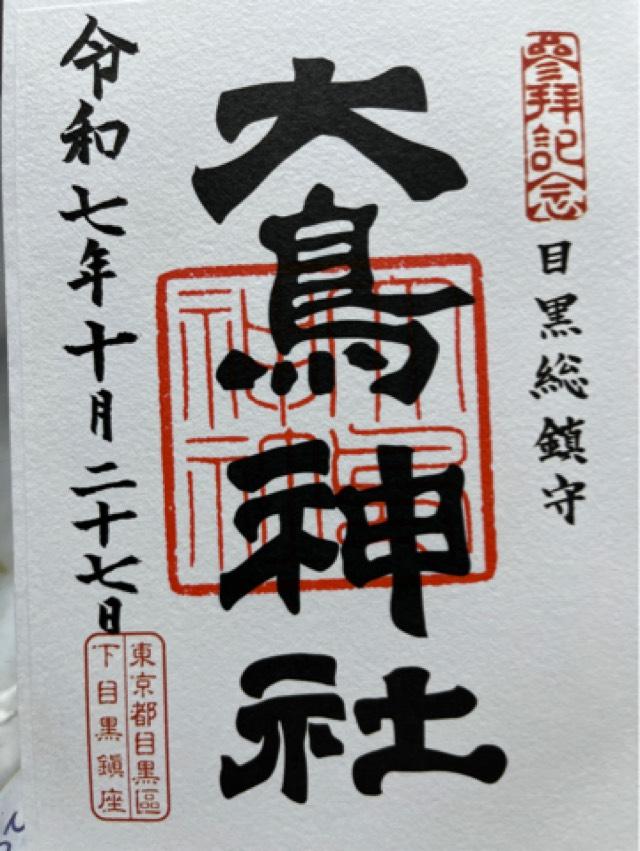 參拜記念
目黒総鎮守
大鳥神社
大鳥神社
令和七年十月二十七日
東京都目黒區
下目黒鎭座